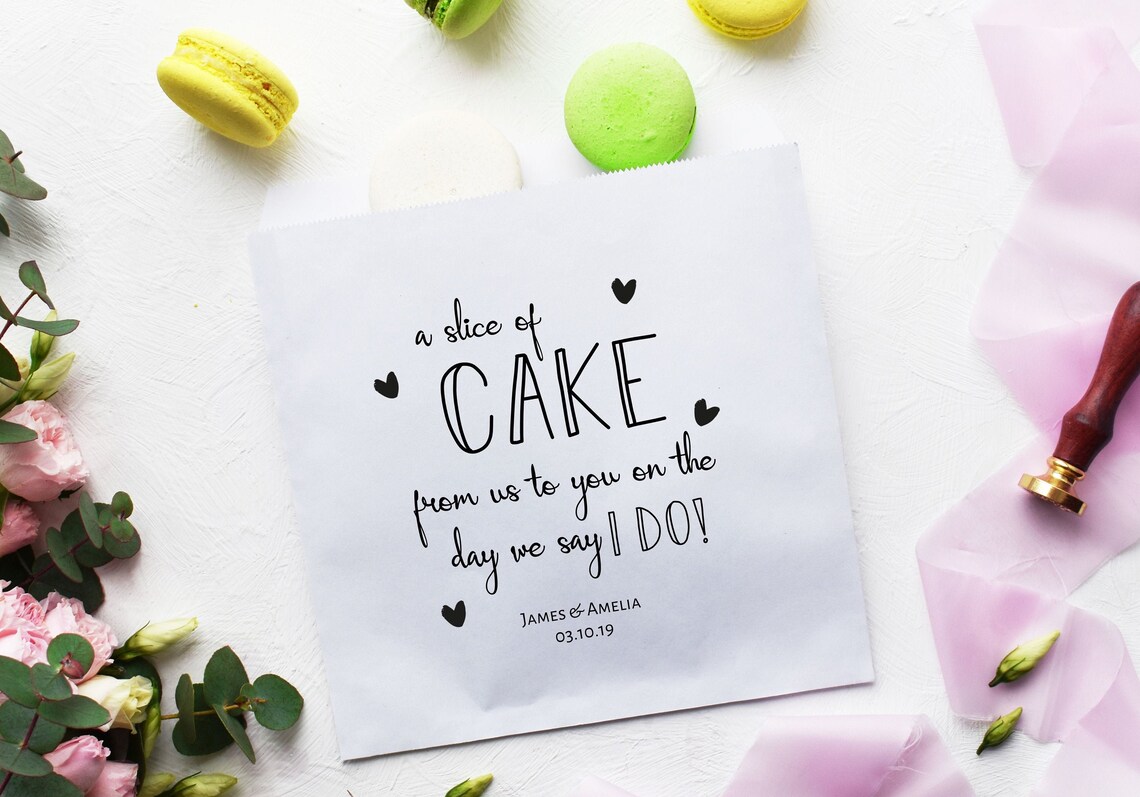 a slice of
CAKE
from us to you on the
day we say I DO!
James & Amelia
03.10.19